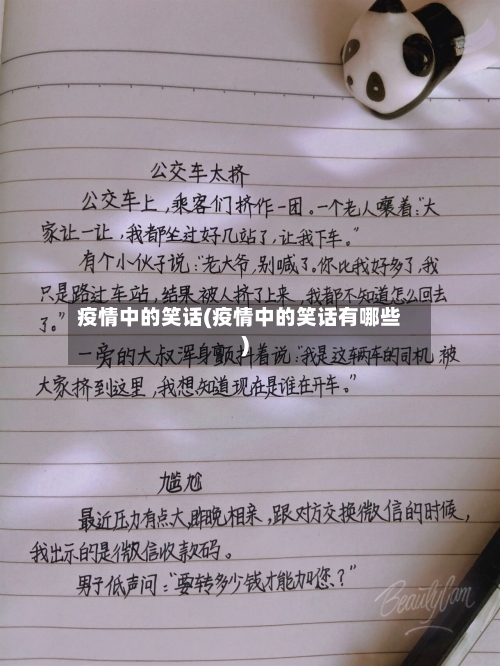 公交车太挤
公交车上，乘客们挤作一团。一个老人嚷着："大
家让一让，我都坐过好几站了，让我下车。"
有个小伙子说："老大爷，别喊了。你比我好多了，我
只是路过车站，结果被人挤了上来，我都不知道怎么回去
了。"
疫情中的笑话(疫情中的笑话有哪些
)
一旁的大叔浑身颤抖着说："我是这辆车的司机 被
大家挤到这里，我想知道现在是谁在开车。"
尴尬
最近压力有点大，昨晚相亲，跟对方交换微信的时候，
我出示的是微信收款码。
男子低声问："要转多少钱才能加您？"
BeautyCam